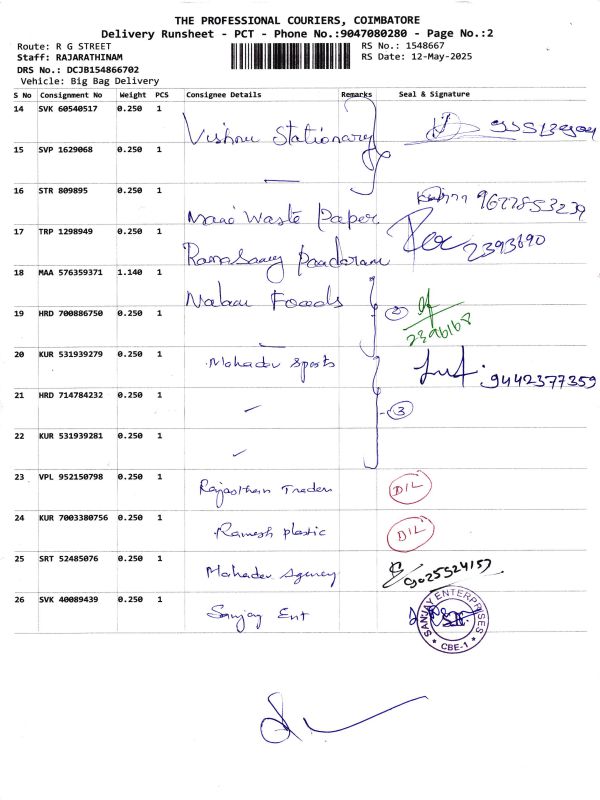 THE PROFESSIONAL COURIERS, COIMBATORE
Delivery Runsheet - PCT - Phone No.:9047080280 - Page No.:2
Route: R G STREET
Staff: RAJARATHINAM
DRS No.: DCJB154866702
Vehicle: Big Bag Delivery
RS No.: 1548667
RS Date: 12-May-2025
S No Consignment No Weight PCS Consignee Details Remarks Seal & Signature
14 SVK 60540517 0.250 1 Vishnu Stationary
15 SVP 1629068 0.250 1
16 STR 809895 0.250 1 Mani Waste Paper 9677853239
17 TRP 1298949 0.250 1 Ramasamy Pandaram 2393690
18 MAA 576359371 1.140 1 Nalam Foods
19 HRD 700886750 0.250 1 2 2396168
20 KUR 531939279 0.250 1 Mahadev Sports 9442377359
21 HRD 714784232 0.250 1 3
22 KUR 531939281 0.250 1
23 VPL 952150798 0.250 1 Rajasthan Traders D/L
24 KUR 7003380756 0.250 1 Ramesh plastic D/L
25 SRT 52485076 0.250 1 Mahadev Agency 9025524157
26 SVK 40089439 0.250 1 Sanjay Ent
SANJAY ENTERPRISES
* CBE-1 *